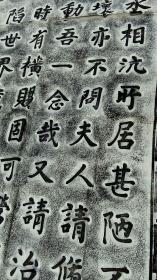 丞相沆所居甚陋
壞亦不問夫人請修
動吾一念哉又請治
時有橫賜固可營
陷世界